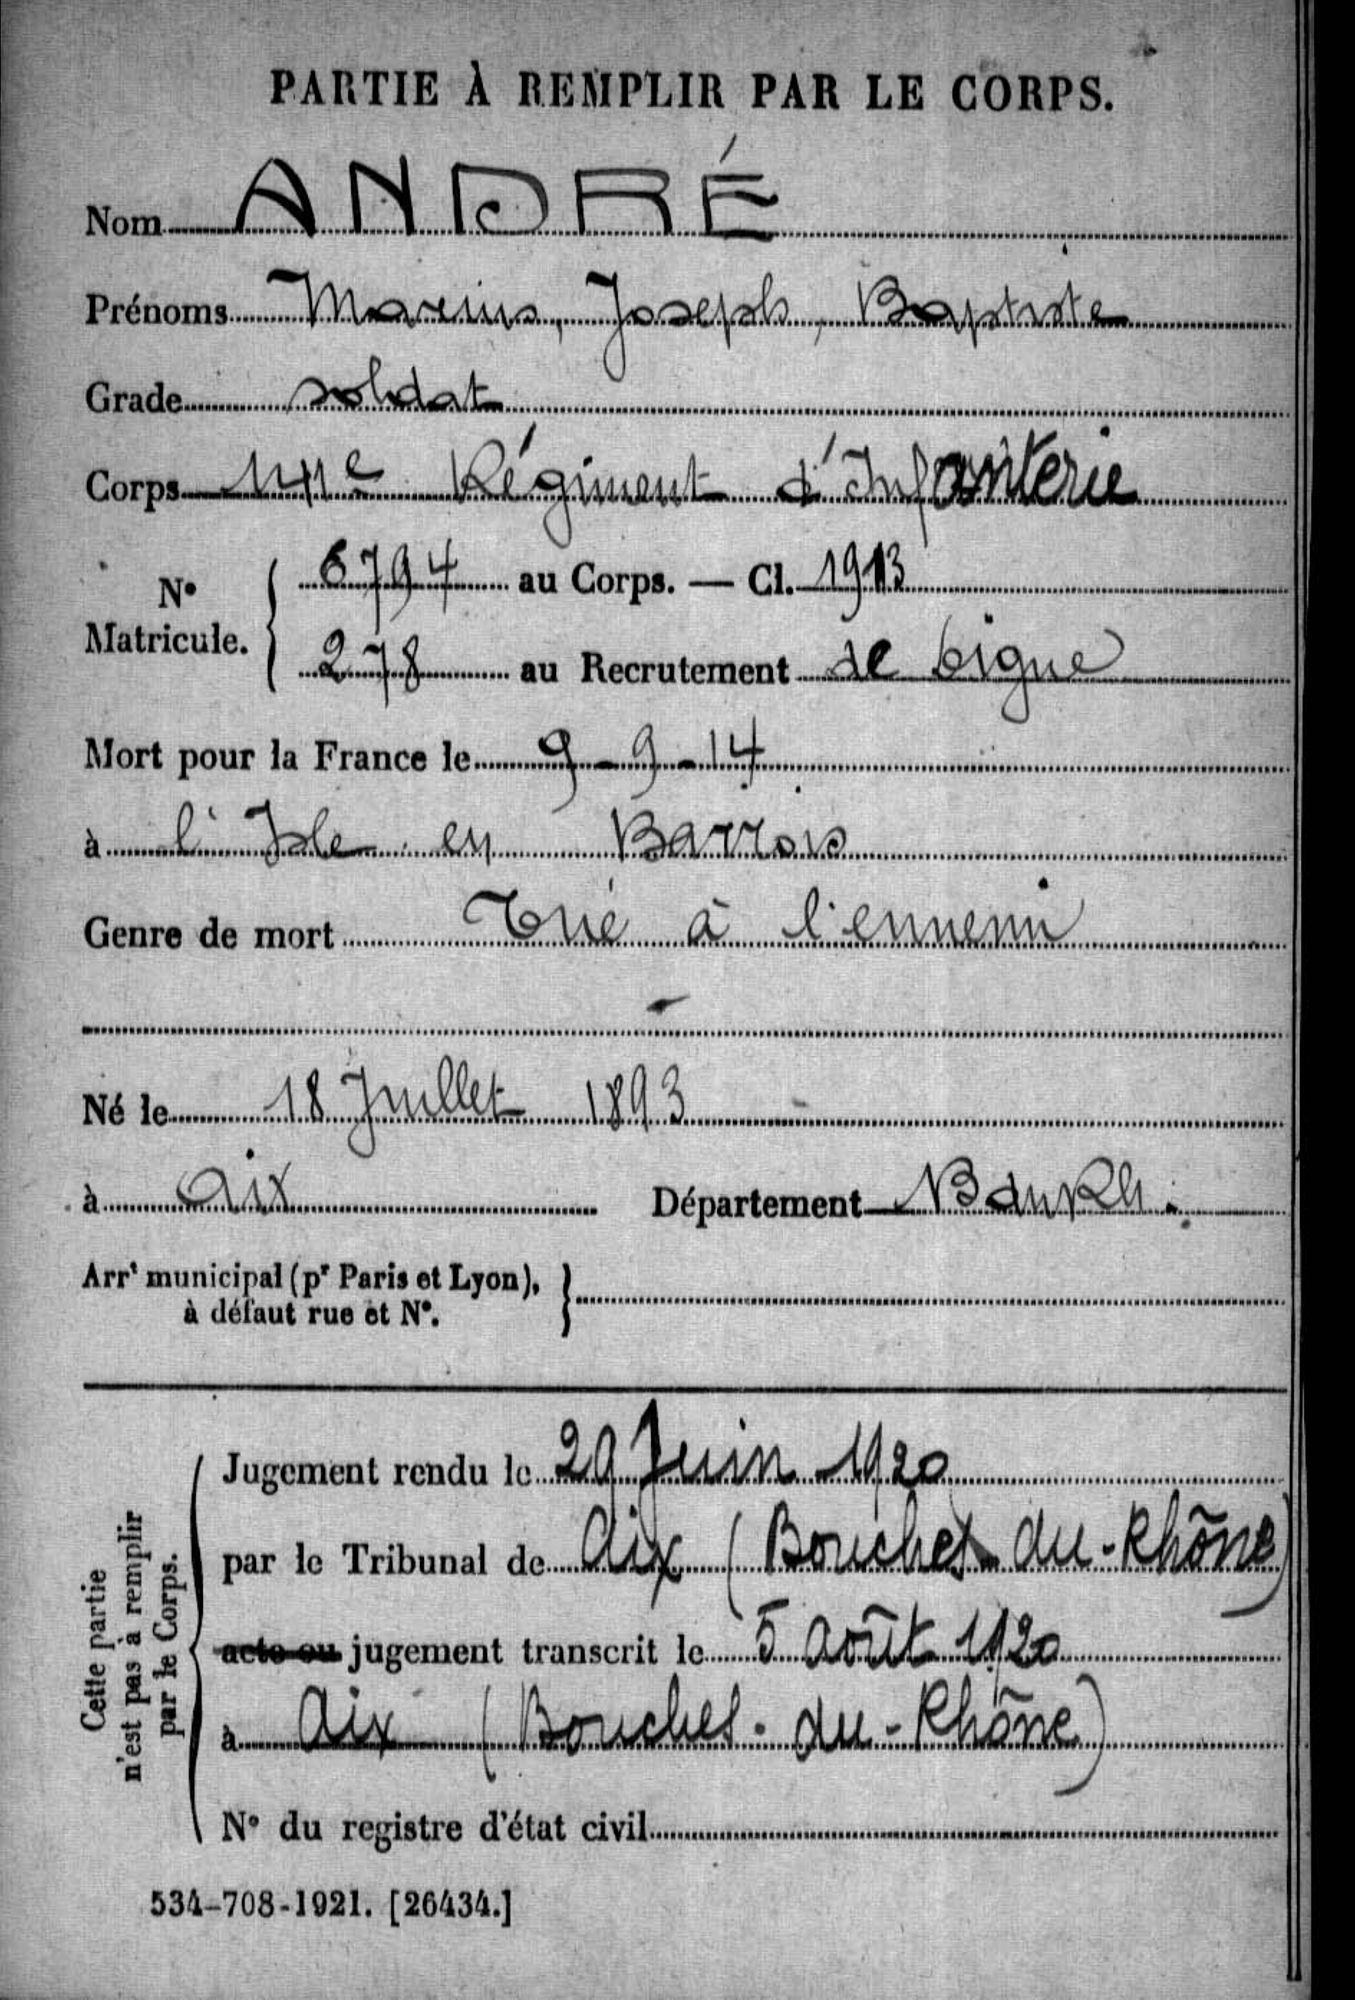 PARTIE À REMPLIR PAR LE CORPS.
Nom ANDRÉ
Prénoms Marius, Joseph, Baptiste
Grade soldat
Corps 141e Régiment d'Infanterie
No Matricule. { 6794 au Corps. — Cl. 1913
278 au Recrutement de Digne
Mort pour la France le 9-9-14
à l'Isle en Barrois
Genre de mort Tué à l'ennemi
Né le 18 Juillet 1893
à Aix Département B du Rh.
Arrt municipal (pr Paris et Lyon), }
à défaut rue et No.
Cette partie
n'est pas à remplir
par le Corps.
Jugement rendu le 29 Juin 1920
par le Tribunal de Aix (Bouches-du-Rhône)
acte ou jugement transcrit le 5 août 1920
à Aix (Bouches-du-Rhône)
No du registre d'état civil
534-708-1921. [26434.]